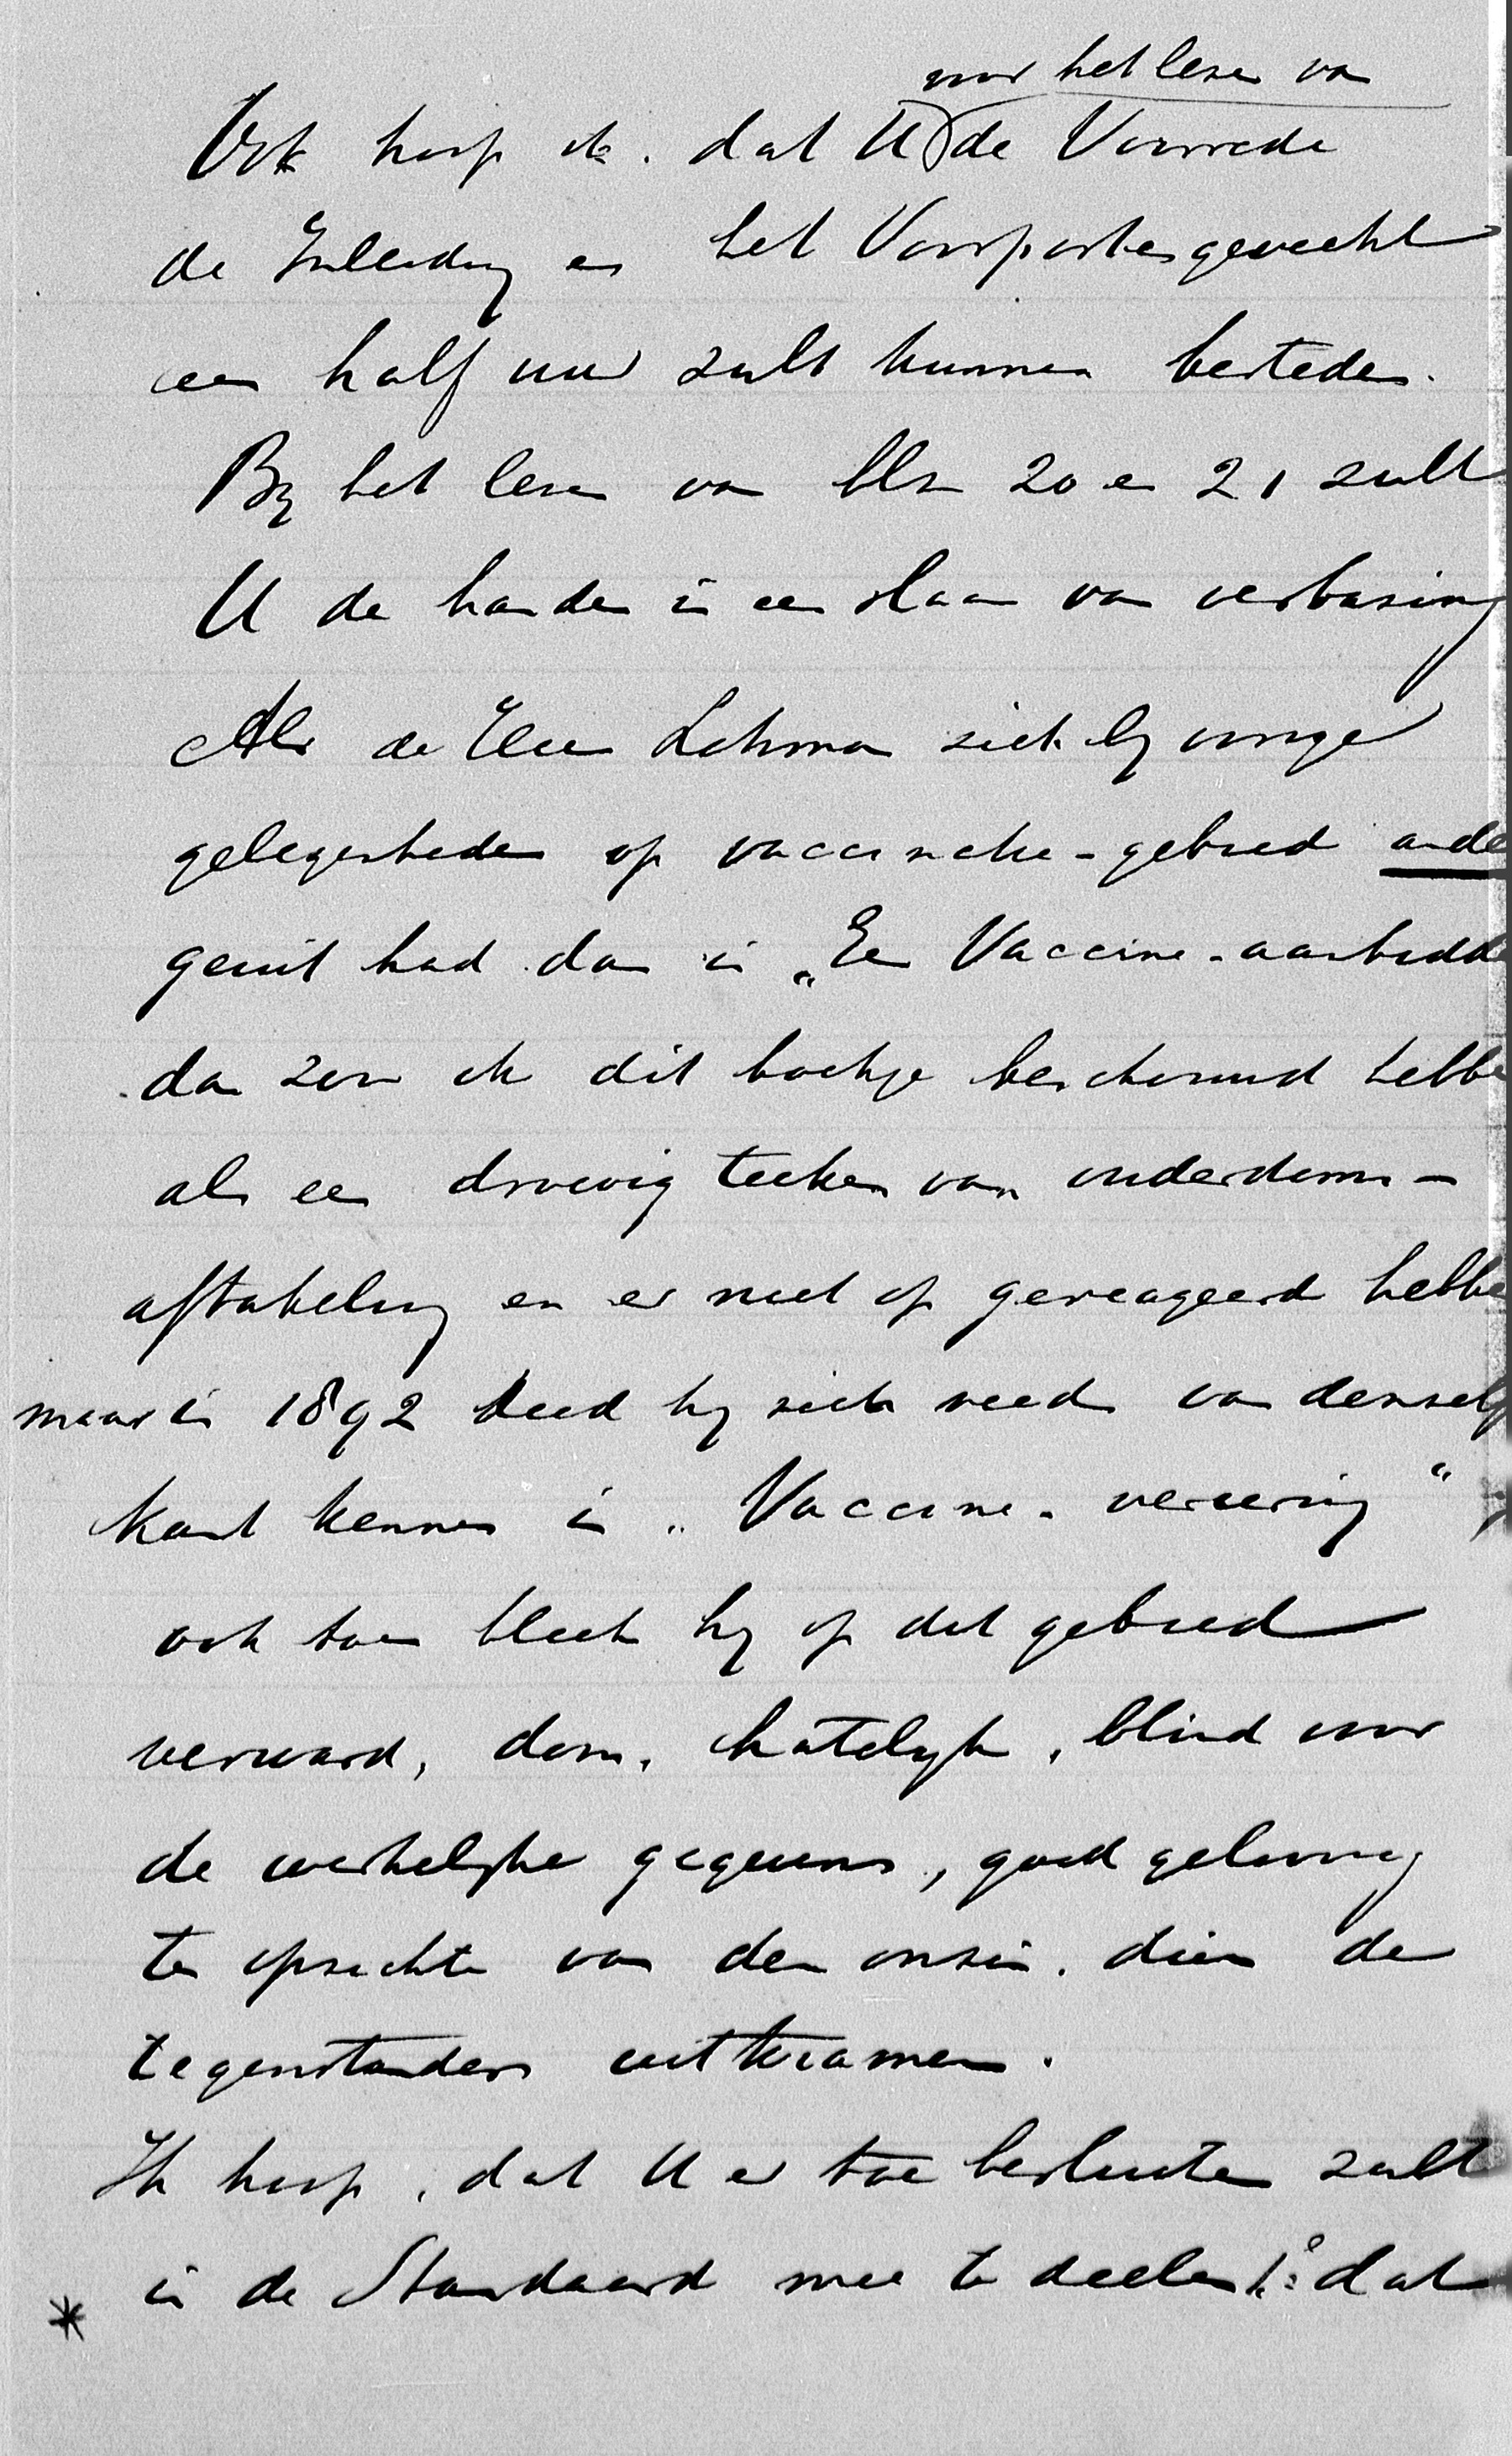 voor het lezen van
Ook hoop ik, dat U de Voorrede
de Inleiding en het Voorpostengevecht
een half uur zult kunnen besteden.
Bij het lezen van blz 20 en 21 zult
U de handen in een slaan van verbazing
Als de Heer Lohman zich bij vorige
gelegenheden op vaccinatie-gebied ande
geuit had dan in „Een Vaccine-aanbidde
dan zou ik dit boekje beschouwd hebbe
als een droevig teeken van ouderdoms-
aftakeling en er niet op gereageerd hebbe
maar in 1892 deed hij zich reeds van denzelf
kant kennen in „Vaccine-vereering“
ook toen bleek hij op dit gebied
verward, dom, hatelijk, blind voor
de werkelijke gegevens, goed geloovig
ten opzichte van den onzin, dien de
tegenstanders uitkramen.
Ik hoop, dat U er toe besluiten zult
* in de Standaard mee te deelen 1º: dat